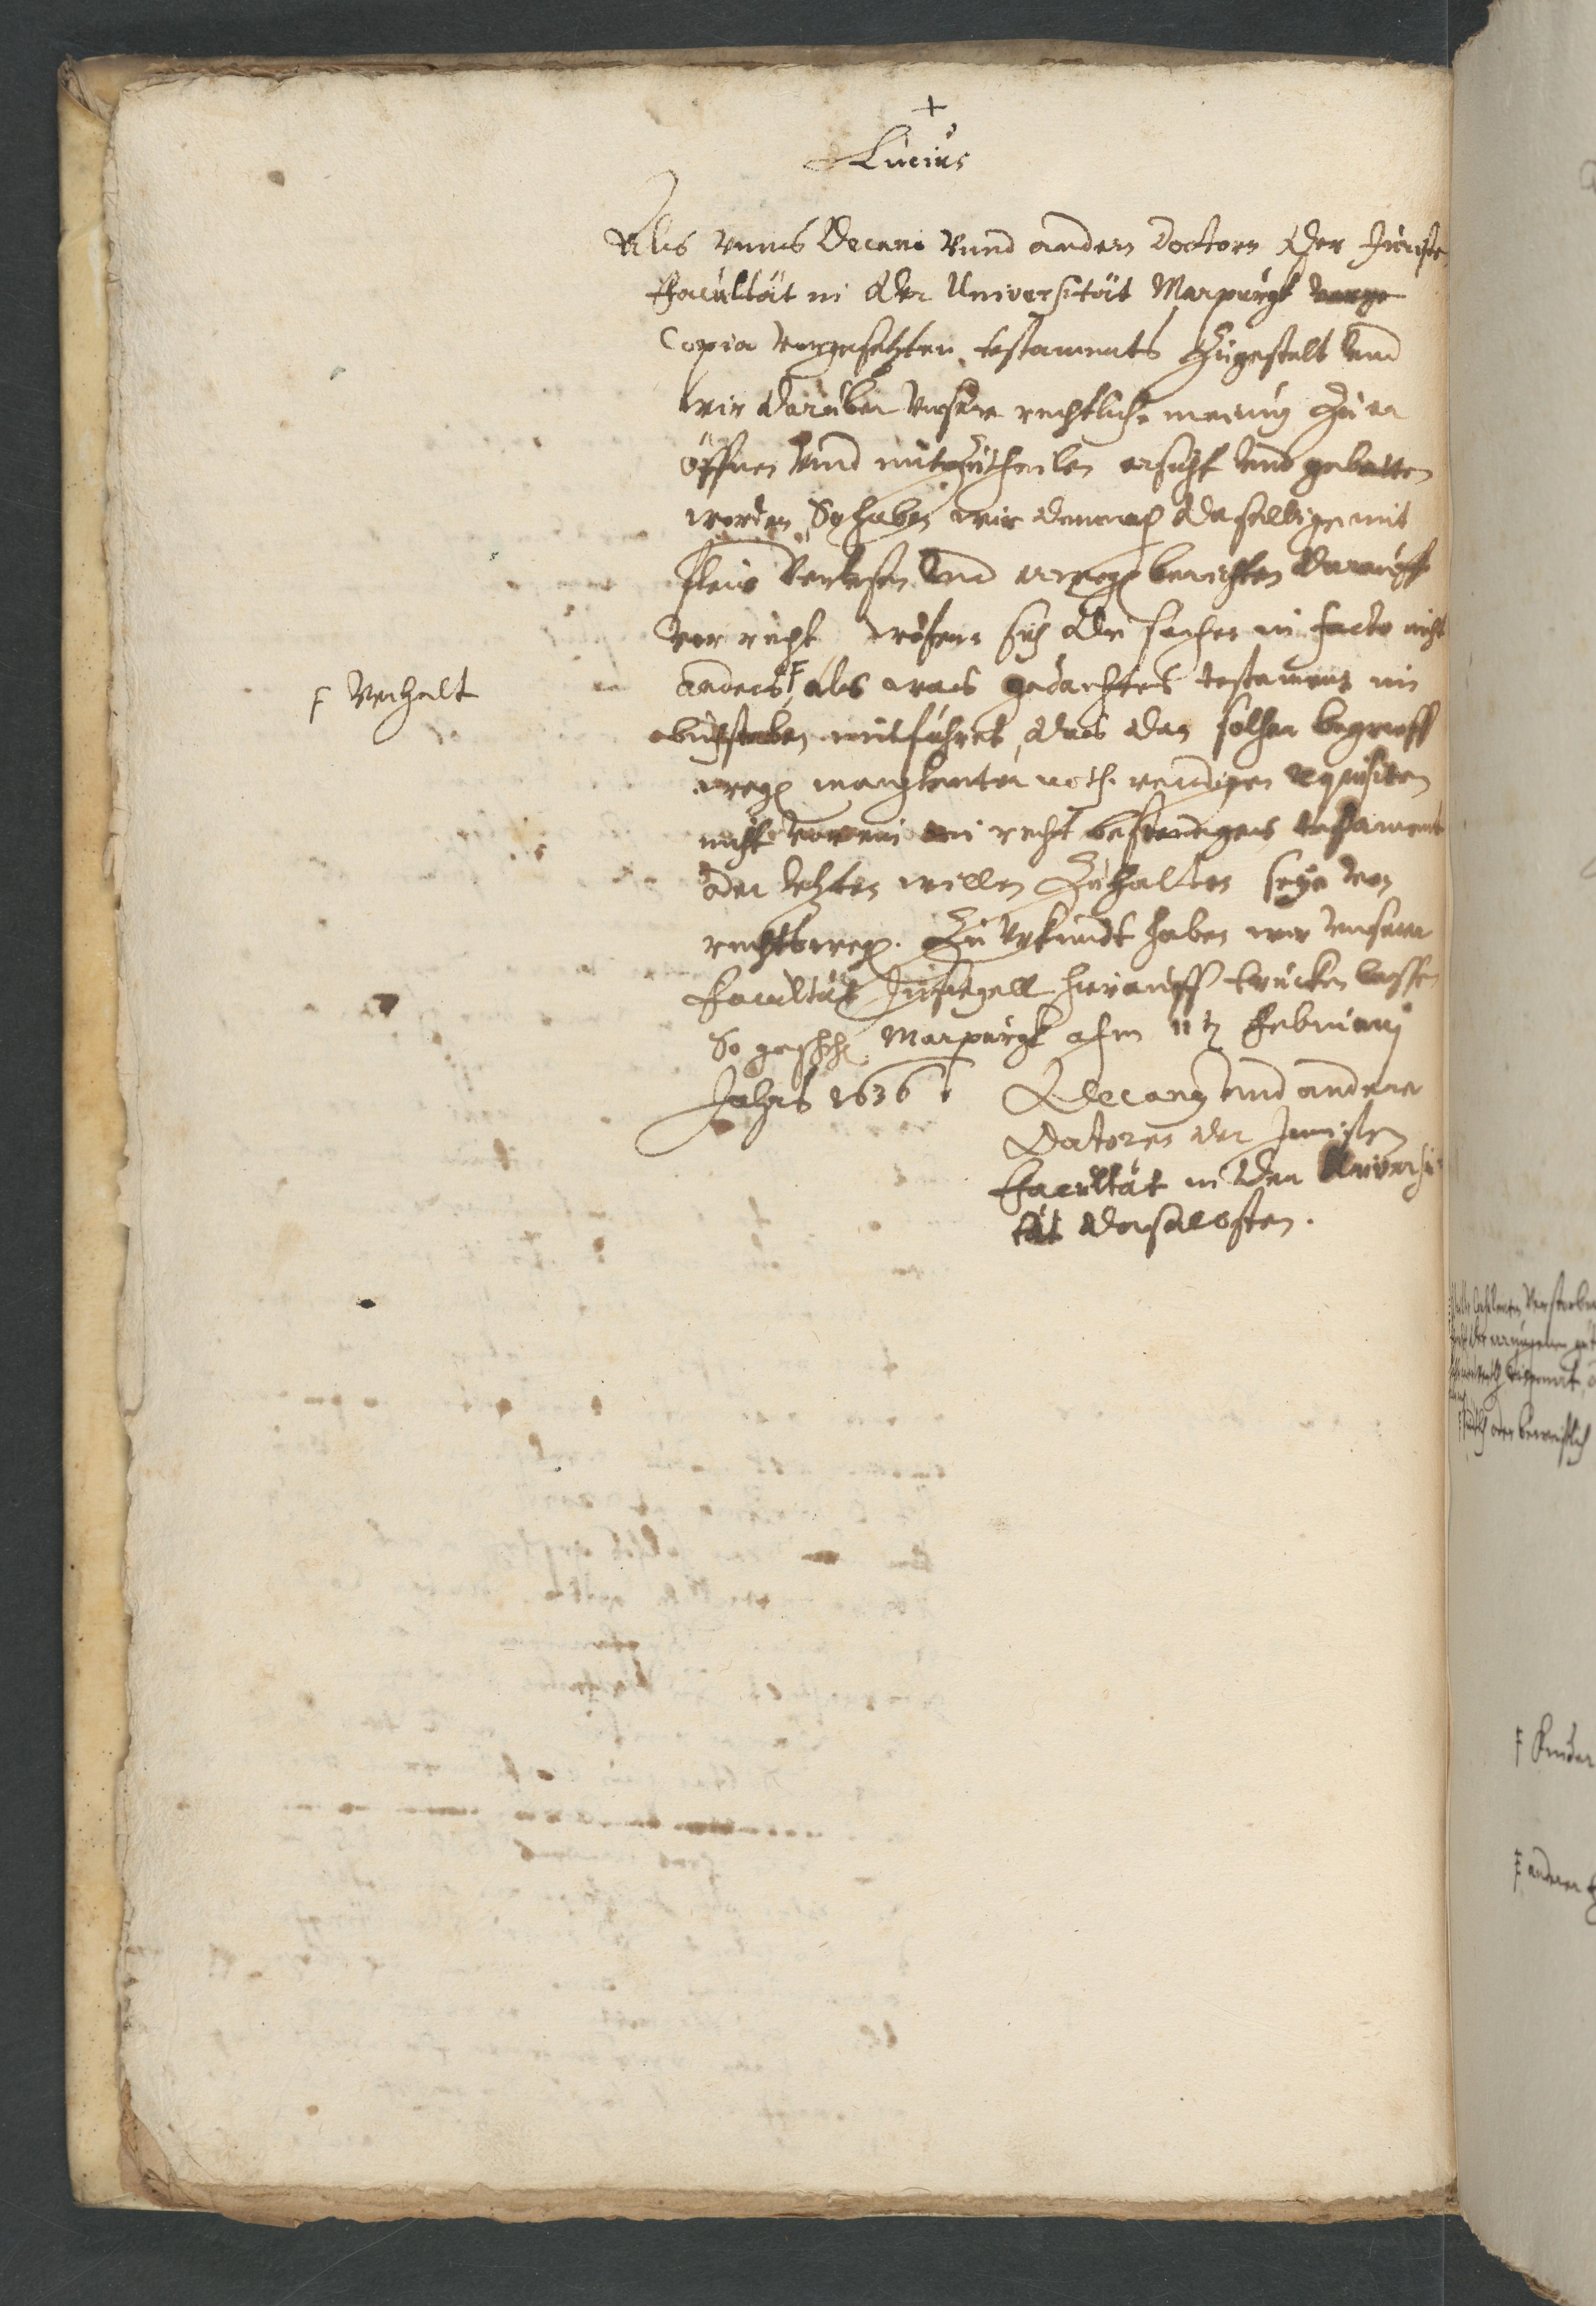 +
Lucius
Als unns Decani Vnnd andern Doctorn der Juriste
Facultät in der Universität Marpurgk
Copia vorgesetzten testaments Zugestelt Vnd
wir darüber Vnsere rechtliche meinung Zu er
öffnen Vnd mitzutheilen ersucht Vnd gebetten
worden, So haben wir demnach daselbige mit
fleis Verlesen Vnd berichten darauff
vor recht, wofern sich die sachen in facto nicht
anders F als wais gedachtes testament im
F Verhalt
buchstaben mitführet, das das solcher begrieff
wegen manglenter nothwendigen requisiten
nicht vor ein in recht bestendiges testament
oder letzten willen Zuhalten seye von
rechtswegen. Zu Vrkundt haben wir Vnserer
Facultät Insiegell hierauff trucken lassen
So geschehen Marpurgk ahm 11ten Februarij
Jahrs 1636.
Decanus Vnd andere
Doctores der Juristen
Facultät in der Universi
tät daselbsten.
F Kinder
F anderer